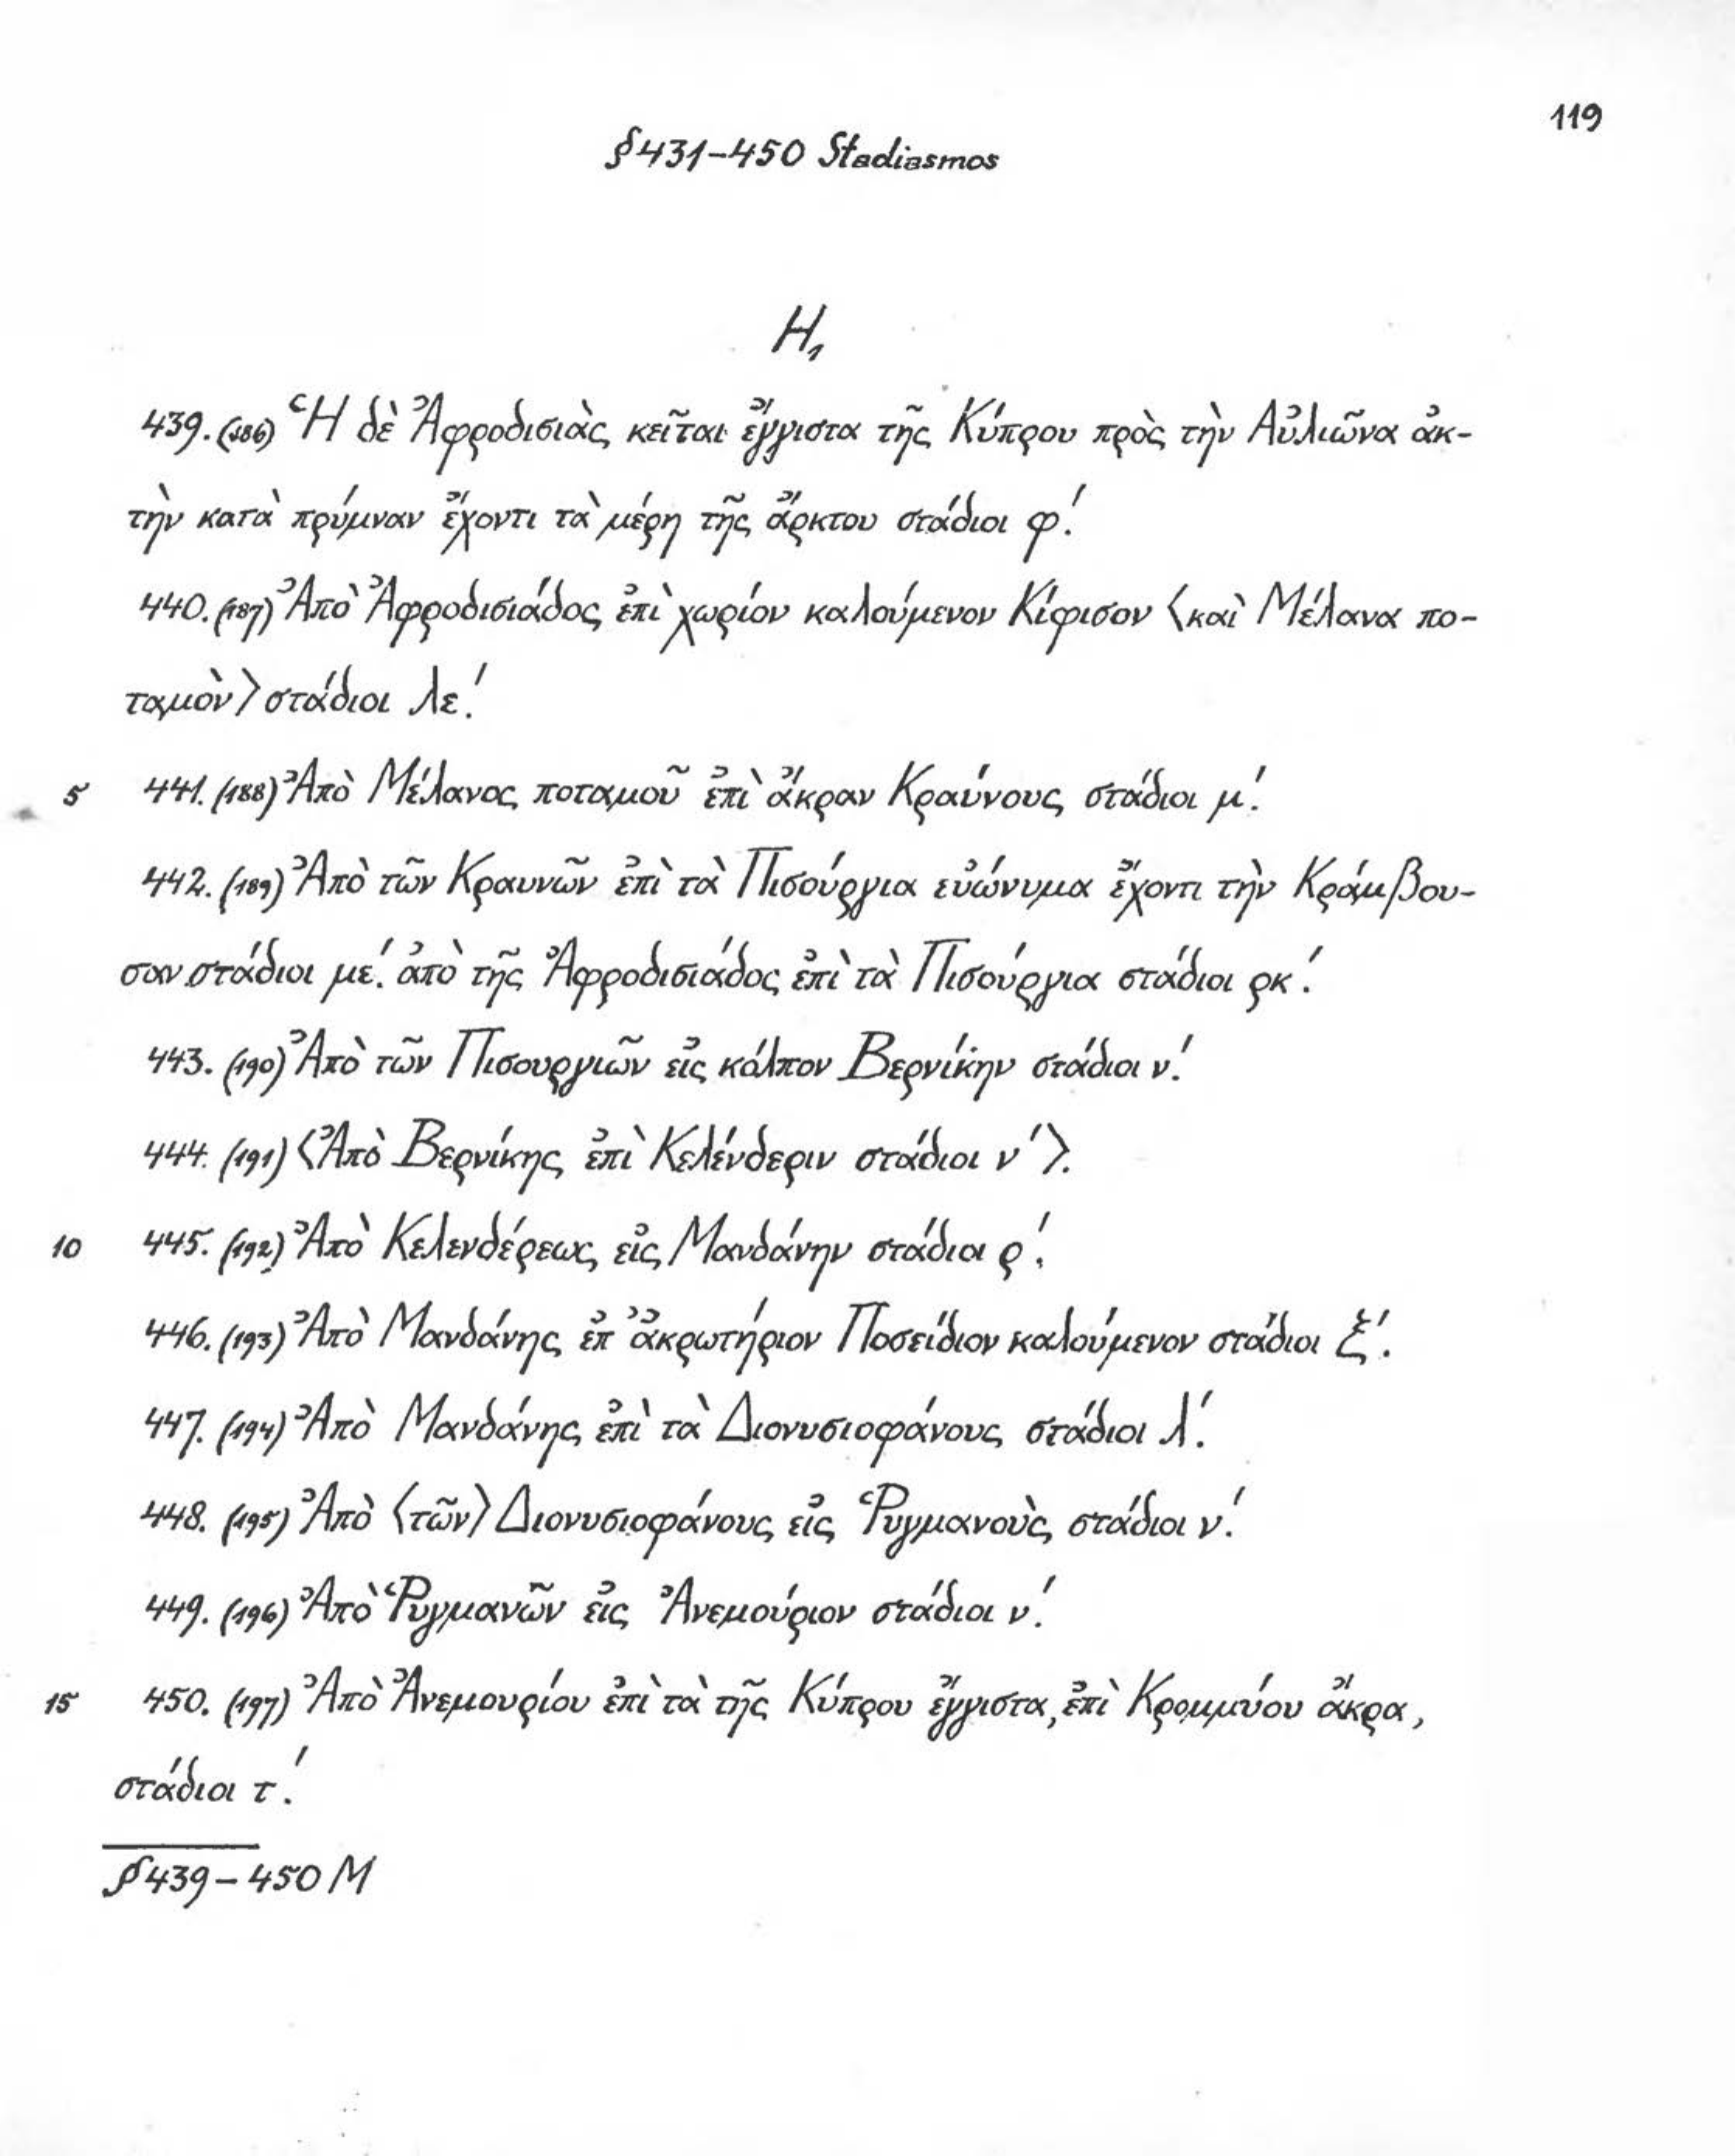 119
§431-450 Stadiasmos
H₁
439. (186) Ἡ δὲ Ἀφροδισιὰς κεῖται ἔγγιστα τῆς Κύπρου πρὸς τὴν Αὐλιῶνα ἀκ-
τὴν κατὰ πρύμναν ἔχοντι τὰ μέρη τῆς ἄρκτου στάδιοι φ′.
440. (187) Ἀπὸ Ἀφροδισιάδος ἐπὶ χωρίον καλούμενον Κίφισον ⟨καὶ Μέλανα πο-
ταμὸν⟩ στάδιοι λε′.
5 441. (188) Ἀπὸ Μέλανος ποταμοῦ ἐπὶ ἄκραν Κραύνους στάδιοι μ′.
442. (189) Ἀπὸ τῶν Κραυνῶν ἐπὶ τὰ Πισούργια εὐώνυμα ἔχοντι τὴν Κράμβου-
σαν στάδιοι με′. ἀπὸ τῆς Ἀφροδισιάδος ἐπὶ τὰ Πισούργια στάδιοι ρκ′.
443. (190) Ἀπὸ τῶν Πισουργιῶν εἰς κόλπον Βερνίκην στάδιοι ν′.
444. (191) ⟨Ἀπὸ Βερνίκης ἐπὶ Κελένδεριν στάδιοι ν′⟩.
10 445. (192) Ἀπὸ Κελενδέρεως εἰς Μανδάνην στάδιοι ρ′.
446. (193) Ἀπὸ Μανδάνης ἐπ' ἀκρωτήριον Ποσείδιον καλούμενον στάδιοι ξ′.
447. (194) Ἀπὸ Μανδάνης ἐπὶ τὰ Διονυσιοφάνους στάδιοι λ′.
448. (195) Ἀπὸ ⟨τῶν⟩ Διονυσιοφάνους εἰς Ῥυγμανοὺς στάδιοι ν′.
449. (196) Ἀπὸ Ῥυγμανῶν εἰς Ἀνεμούριον στάδιοι ν′.
15 450. (197) Ἀπὸ Ἀνεμουρίου ἐπὶ τὰ τῆς Κύπρου ἔγγιστα, ἐπὶ Κρομμύου ἄκρα,
στάδιοι τ′.
§439-450 M